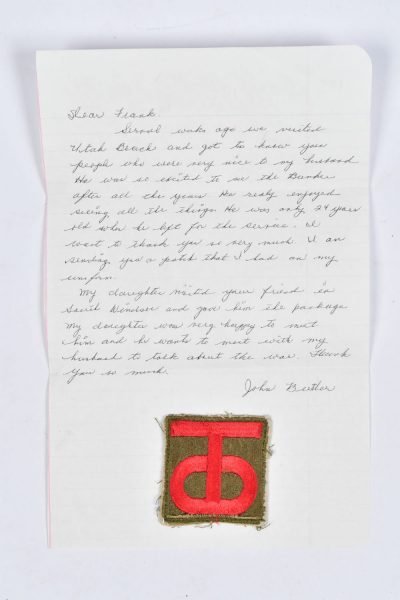 Dear Frank.
Several weeks ago we visited
Utah Beach and got to know you
people who were very nice to my husband
He was so excited to see the Bunker
after all the years. He really enjoyed
seeing all the things. He was only 24 years
old when he left for the service. I
want to thank you so very much. I am
sending you a patch that I had on my
uniform.
My daughter visited your friend in
Windsor and gave him the package
My daughter was very happy to meet
him and he wants to meet with my
husband to talk about the war. Thank
you so much.
John
TO